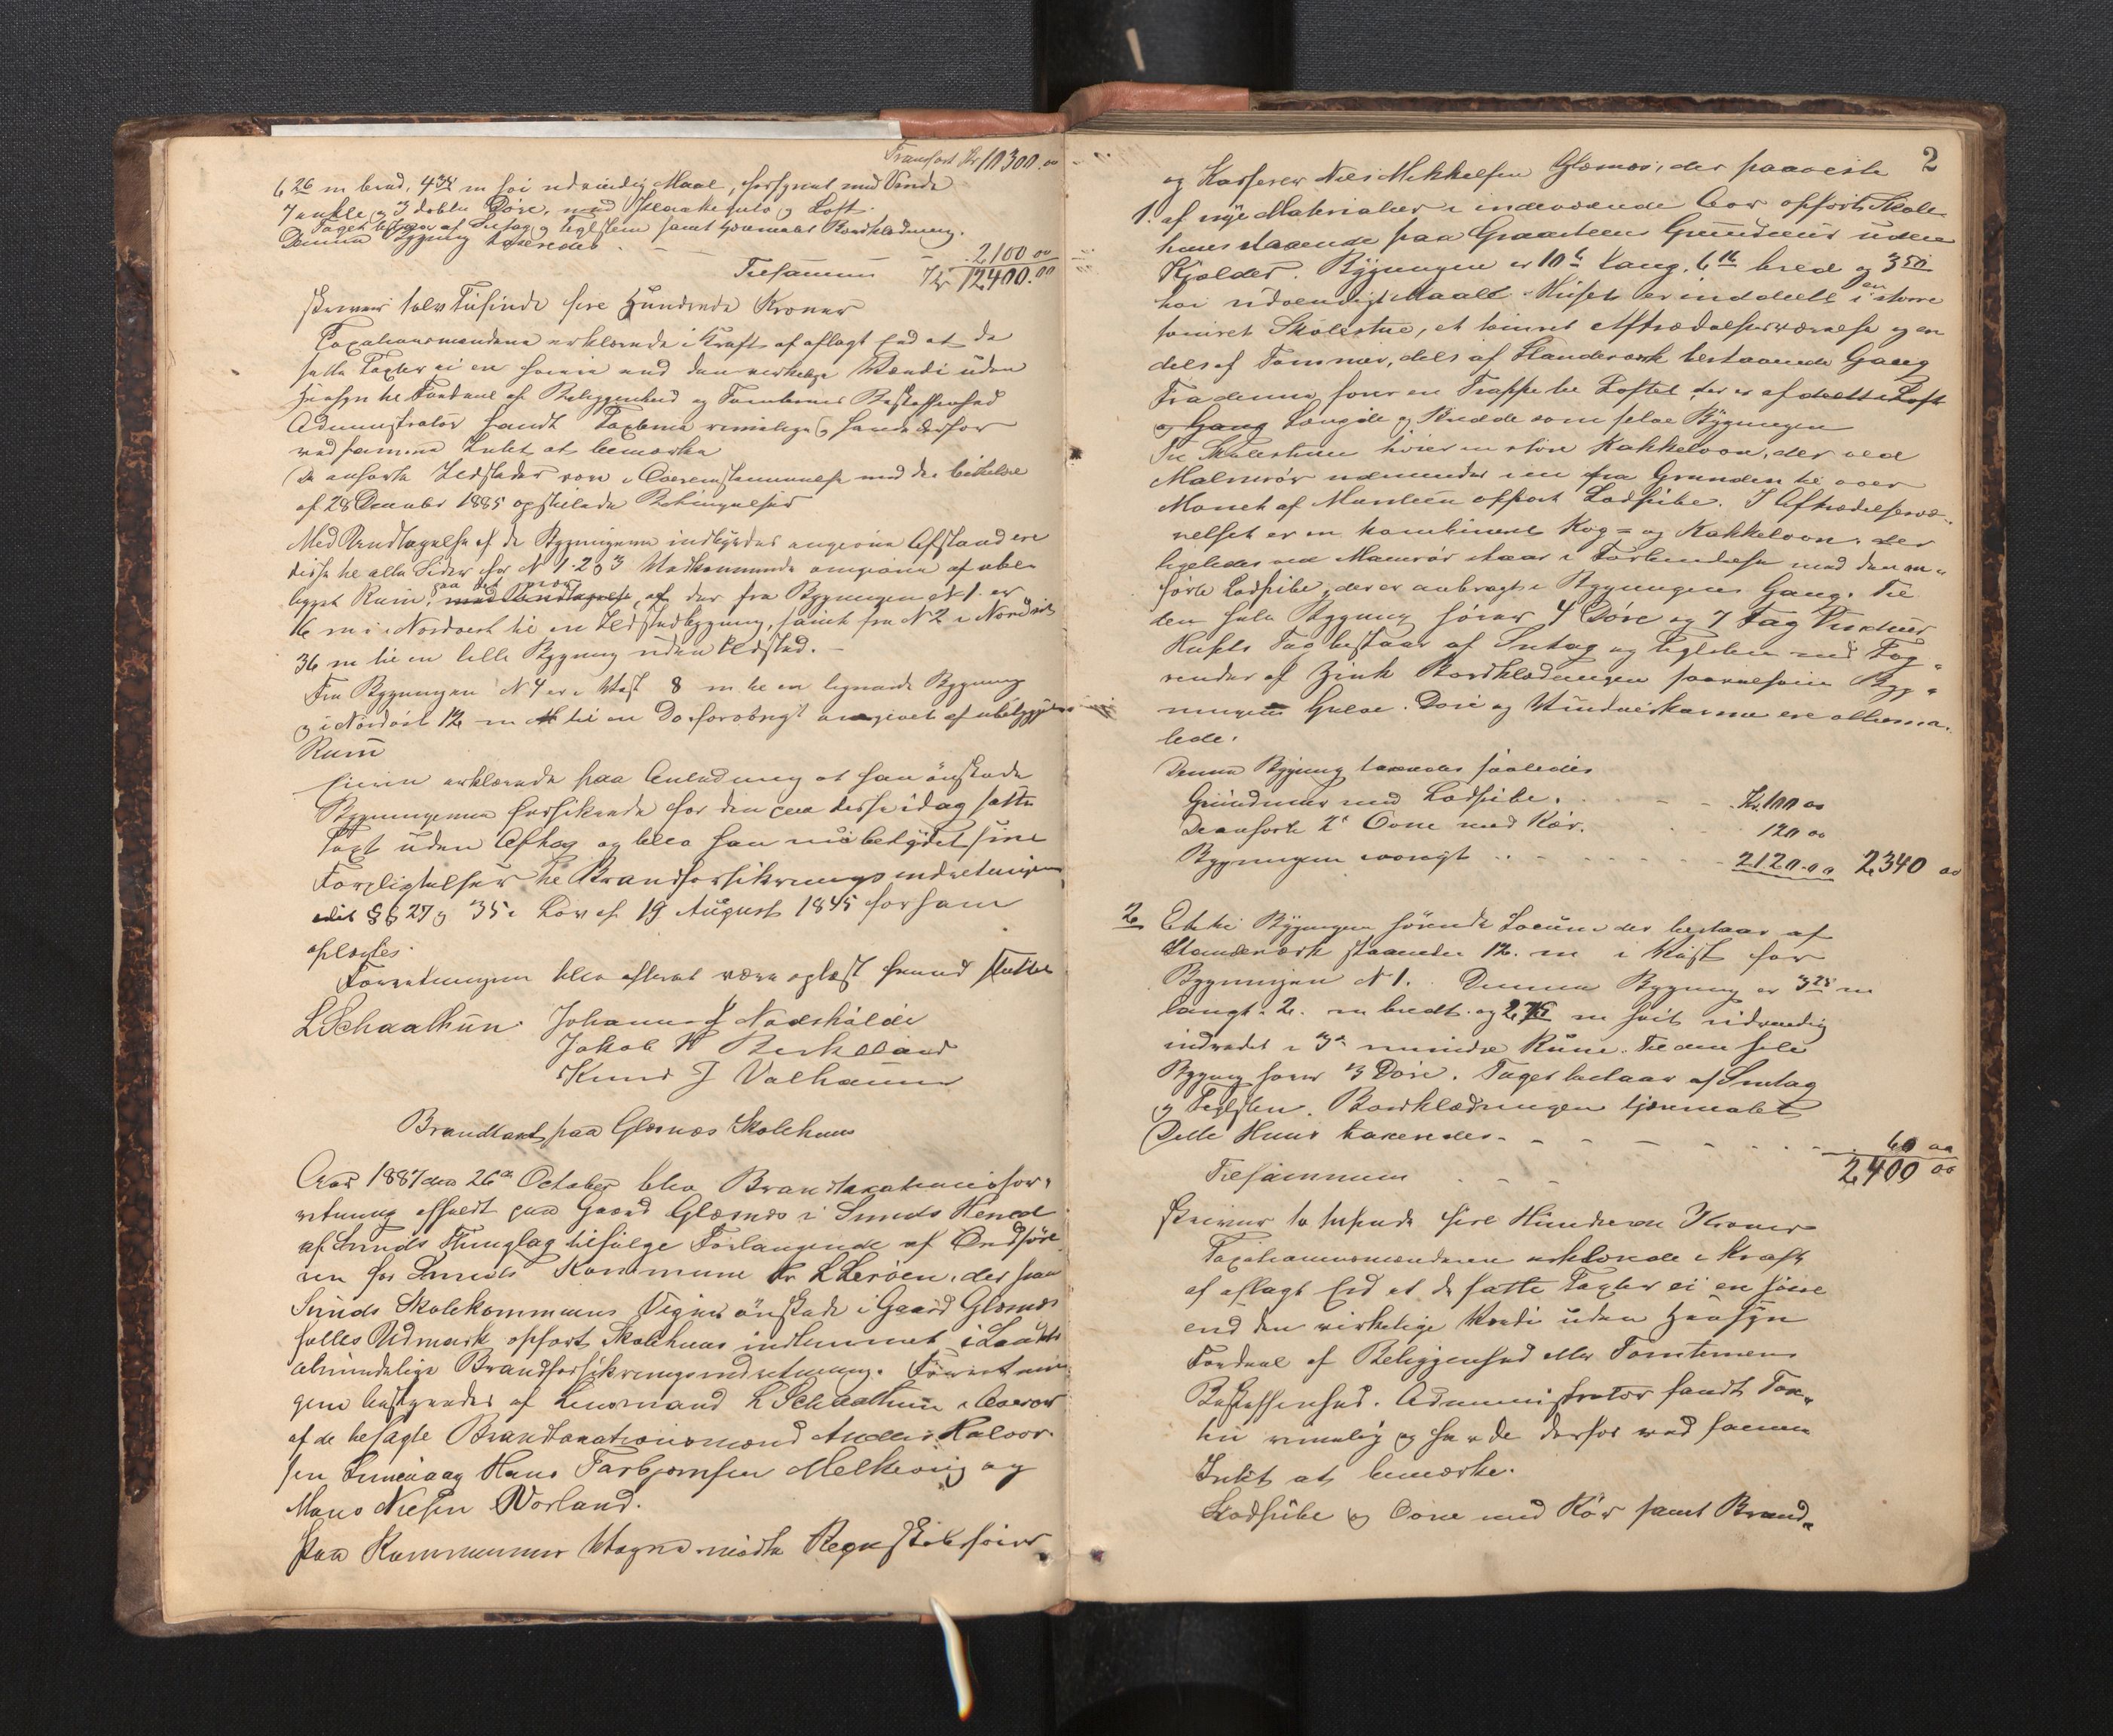 Transport Kr 10300.00
6 26 m bred, 4 38 m høi udvendig Maal, forsynet med Vindu
7 enkle og 3 doble Døre, med Plankegulv og Loft.
Taget bestaar af Sutag og Teglsten samt tjæremalet Bordklædning.
Denne Bygning taxeredes - - 2100 00
Tilsammen - Kr 12400.00
skriver tolv Tusinde fire Hundrede Kroner
Taxationsmændene erklærede i Kraft af aflagt Eed at de
satte Taxter ei er høiere end den virkelige Værdi uden
Hensyn til Fordele af Beliggenhed og Tomternes Beskaffenhed
Administrator fandt Taxterne rimelige og havde derfor
ved samme Intet at bemærke
De anførte Ildsteder vare i Overensstemmelse med de
af 28 December 1885 opstillede Betingelser
Med Undtagelse af de Bygningerne indbyrdes angivne Afstand ere
disse til alle Sider for N 1. 2 og 3 Vedkommende omgivne af ube-
bygget Rum, med Undtagelse af der fra Bygningen N 1. er
16 m i Nordvest til en Ildstedbygning, samt fra N 2 i Nordvest
36 m til en lille Bygning uden Ildsted. -
Fra Bygningen N 4 er i Vest 8 m til en lignende Bygning
og i Nordost 12 m til en Do forøvrigt omgivet af ubebygget
Rum
Eieren erklærede paa Anledning at han ønskede
Bygningerne forsikrede for den paa disse idag satte
Taxt uden Afslag og blev han nu betydet sine
Forpligtelser til Brandforsikringsindretningen
§§ 27 og 35 i Lov af 19 August 1845 for ham
oplæstes.
Forretningen blev efterat være oplæst hermed sluttet
L Schaathun. Johannes J Nodshilde
Jakob H Birkeland
Knud J Valhammer
Brandtaxt paa Glesnæs Skolehuus
Aar 1887 den 26de October blev Brandtaxationsfor-
retning afholdt paa Gaard Glesnæs i Sunds Herred
af Sunds Thinglag tilfølge Forlangende af Ordføre
ren for Sunds Kommune Hr L Lerøen, der paa
Sunds Skolekommunes Vegne ønskede i Gaard Glesnæs
fælles Udmark opført Skolehuus indlemmet i Landets
almindelige Brandforsikringsindretning. Forretnin
gen bestyredes af Lensmand L Schaathun i Overvær
af de besagte Brandtaxationsmænd Anders Halvor-
sen Hans Torbjørnsen Melkevig og
Mons Nielsen Vorland.
Paa Kommunens Vegne mødte Regnskabsfører
2
og Kasserer Nils Mikkelsen Glesnæs, der paaviste
1. af nye Materialier i indeværende Aar opført Skole-
huus staaende paa Graasteens Grundmuur uden
Kjelder. Bygningen er 10 6 lang, 6 16 bred og 3 50
høi udvendigt Maal. Huset er inddeelt i en større
tømret Skolestue, et tømret Aftrædelsesværelse og en
dels af Tømmer, dels af Standværk bestaaende Gang
Fra denne fører en Trappe til Loftet der er af
og Gang Længde og Bredde som selve Bygningen
Til Skolestuen hører en større Kakkelovn, der ved
Malmrør udmunder i en fra Grunden til over
Mønet af Mursteen opført Ladpibe. I Aftrædelsesvæ-
relset er en kombineret Kog= og Kakkelovn, der
ligeledes ved Malmrør staar i Forbindelse med den an-
førte Ladpibe, der er anbragt i Bygningens Gang. Til
den hele Bygning hører 4 Døre og 7 Fag Vinduer
Husets Tag bestaar af Sutag og Teglsten med Tag-
render af Zink Bordklædningen saavelsom Byg-
ningens Gulve. Døre og Vindueskarme ere oliema-
lede.
Denne Bygning taxeredes saaledes
Grundmur med Ladpibe. - - Kr. 100 00
De anførte 2 Ovne med Rør. - 120 00
Bygningen iøvrigt - - - 2120.00 2340 00
2 Et til Bygningen hørende Locum der bestaar af
Standværk staaende 12. m i Vest for
Bygningen N 1. Denne Bygning er 3 28 m
langt. 2. m bredt. og 2, m høit udvendig
indredet i 3 mindre Rum. Til den hele
Bygning hører 3 Døre. Taget bestaar af Sutag
og Teglsten. Bordklædningen tjæremalet
Dette Huus taxeredes - - - - - 60 00
Tilsammen - - - 2400 00
skriver to tusende fire Hundrede Kroner
Taxationsmændene erklærede i Kraft
af aflagt Eed at de satte Taxter ei er høiere
end den virkelige Værdi uden Hensyn
Fordele af Beliggenhed eller Tomternes
Beskaffenhed. Administrator fandt Tax-
ten rimelig og havde derfor ved samme
Intet at bemærke.
Ladpibe og Ovne med Rør samt Brand-